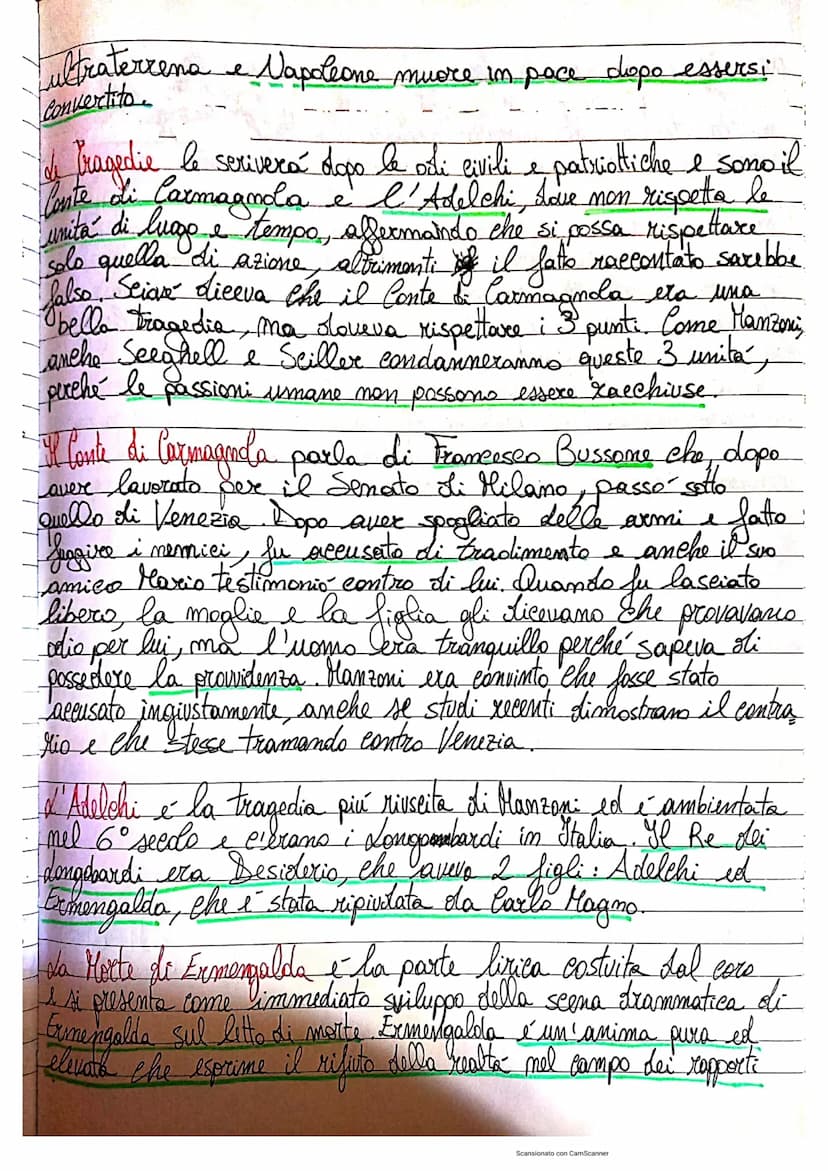 ultraterrena e Napoleone muore in pace dopo essersi
convertito.
Le Tragedie le scriverá dopo le odi civili e patriottiche e sono il
Conte di Carmagnola e l'Adelchi, dove non rispetta le
unitá di luogo e tempo, affermando che si possa rispettare
solo quella di azione, altrimenti il fatto raccontato sarebbe
falso. Sciavé diceva che il Conte di Carmagnola era una
bella tragedia, ma doveva rispettare i 3 punti. Come Manzoni,
anche Seeghell e Sciller condanneranno queste 3 unitá,
perché le passioni umane non possono essere racchiuse.
Il Conte di Carmagnola parla di Francesco Bussone che, dopo
aver lavorato per il Senato di Milano, passó sotto
quello di Venezia. Dopo aver spogliato delle armi e fatto
fuggire i nemici, fu accusato di tradimento e anche il suo
amico Mario testimonió contro di lui. Quando fu lasciato
libero, la moglie e la figlia gli dicevano che provavano
odio per lui, ma l'uomo era tranquillo perché sapeva di
possedere la provvidenza. Manzoni era convinto che fosse stato
accusato ingiustamente, anche se studi recenti dimostrano il contra
rio e che stesse tramando contro Venezia.
L'Adelchi é la tragedia piú riuscita di Manzoni ed é ambientata
nel 6° secolo e c'erano i Longombardi in Italia. Il Re dei
Longobardi era Desiderio, che aveva 2 figli: Adelchi ed
Ermengalda, che é stata ripiudata da Carlo Magno.
La Morte di Ermengalda é la parte lirica costuita dal coro
e si presenta come l'immediato sviluppo della scena drammatica di
Ermengalda sul litto di morte. Ermengalda é un'anima pura ed
elevata che esprime il rifiuto della realtá nel campo dei rapporti
Scansionato con CamScanner